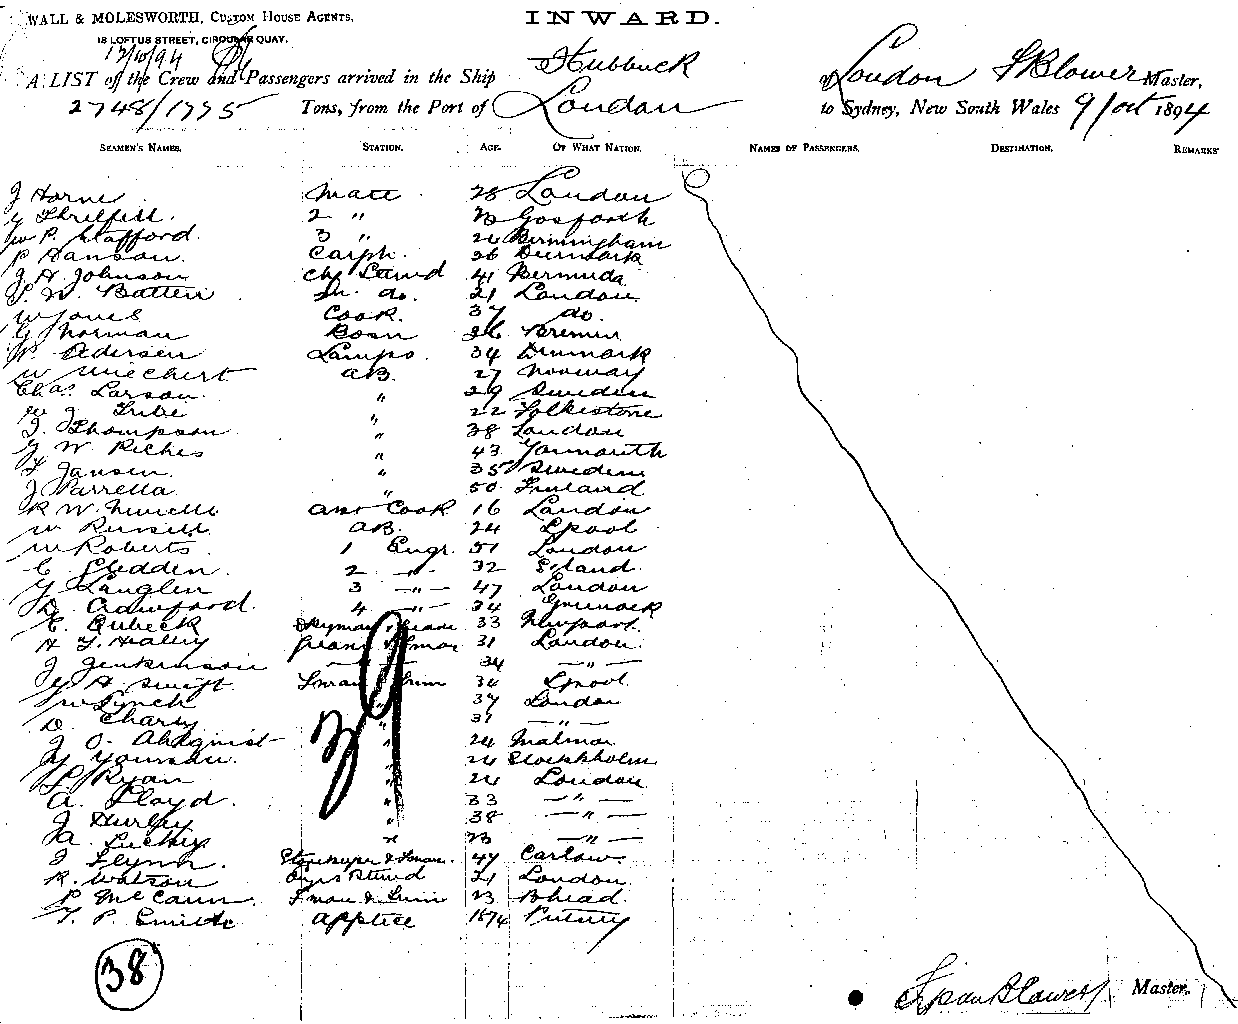 WALL & MOLESWORTH, Custom House Agents,
18 LOFTUS STREET, CIRCULAR QUAY.
INWARD.
A LIST of the Crew and Passengers arrived in the Ship Hubbuck of London Blower Master,
2748/1775 Tons, from the Port of London to Sydney, New South Wales 9/Oct 1894
SEAMEN'S NAMES. STATION. AGE. OF WHAT NATION. NAMES OF PASSENGERS. DESTINATION. REMARKS
J Horne Mate 28 London
2 " Gosforth
W P. Stafford 3 " Birmingham
P Hanson Carp. 26 Denmark
J H Johnson Ch Stewd 41 Bermuda
W. Batten do. 21 London
W Jones Cook. 37 do.
G Norman Bosn 26 Bremen
Lamps. 34 Denmark
W Wiechert AB. 27 Norway
Chas. Larson " 29 Sweden
W J " 22 Folkestone
J. Thompson " 38 London
W. Riches " 43 Yarmouth
Jansen " 35 Sweden
J Parretta " 50
R W. Asst Cook 16 London
W Russell AB. 24 Lpool
W Roberts 1 Engr. 51 London
C Gledden 2 " 32
Langlen 3 " 47 London
D. Crawford 4 " 34 Greenock
E. 33 Newport
H J. Haley 31 London
J Jenkinson 34 "
H Swift Fman & Trim 34 Lpool
W Lynch " 37 London
D. " 31 "
J O. Ahlquist " 24 Malmo
" 24 Stockholm
Ryan " 24 London
A. Lloyd " 33 "
J Hurley " 38 "
A. " 23 "
J Flynn Storekeeper & Fman. 47 Carlow
R. Watson Engrs Stewd 21 London
P McCann Fman & Trim 23 Bhead
T. P. Smith Apptice Putney
39
38
Blower Master.